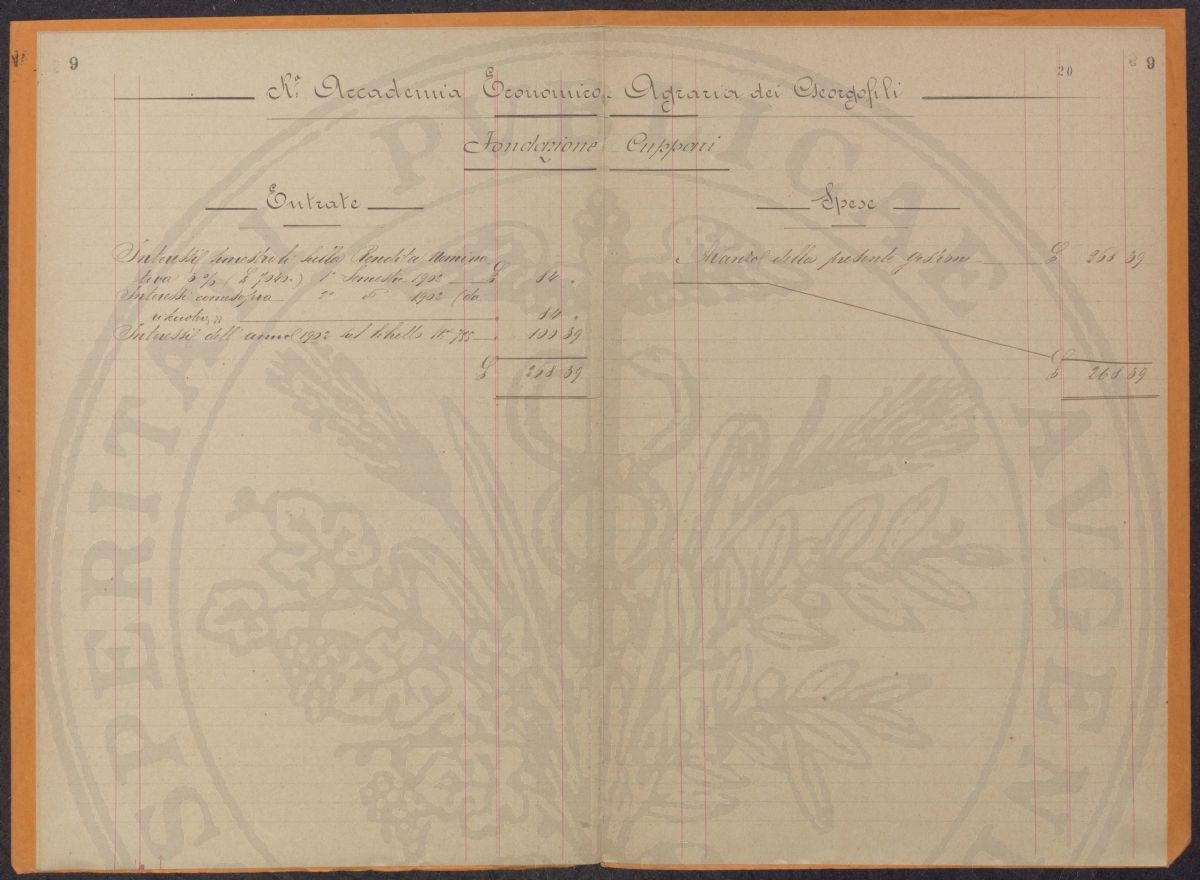 9
20
9
Rª Accademia Economico-Agraria dei Georgofili
Fondazione Cuppari
Entrate
Spese
Interessi semestrali della Rendita Nomina
tiva 5 % 1° Semestre 1902 £ 84 "
Interessi come sopra 2° d° 1902 (da
" 84 "
Interessi dell'anno 1902 sul libello N° 785 " 100 39
£ 268 39
Avanzo della presente gestione £ 268 39
£ 268 39
PERITATI PUBLICAE AVGEN